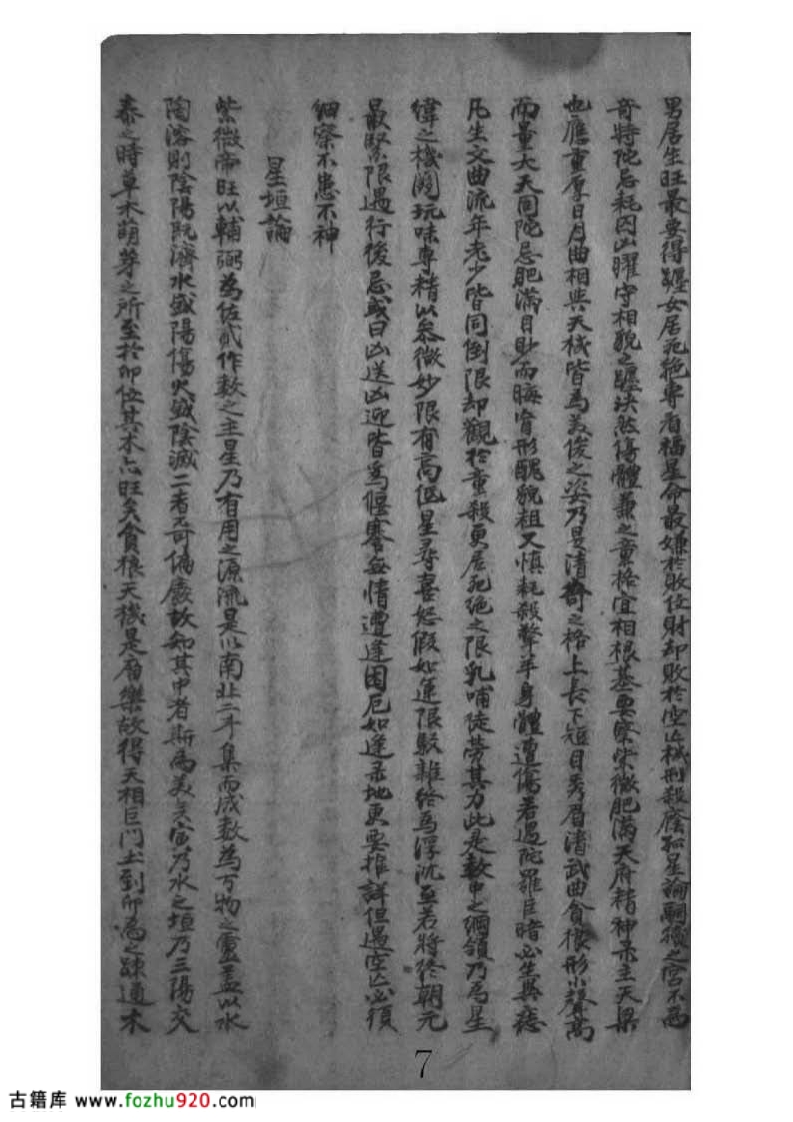 男居生旺最要得躔女居死絶專看福星命最嫌於敗位財却敗於空亡機刑殺廕孤星論嗣續之宮不為
奇特陀忌耗囚凶曜守相貌之躔決然傷體兼之童格宜相根基要察紫微肥滿天府精神祿主天梁
也應重厚日月曲相與天機皆為美俊之姿乃是清奇之格上長下短目秀眉清武曲貪狼形小聲高
而量大天同陀忌肥滿目眇而暗宿形醜貌粗又慎耗殺擎羊身體遭傷若遇陀羅巨暗必生異痣
凡生文曲流年老少皆同倒限却觀於童殺更居死絶之限乳哺徒勞其力此是数中之綱領乃為星
緯之機関玩味專精以參微妙限有高低星尋喜怒假如運限駁雜終為浮沉至若將終朝元
最緊限遇行後忌或曰凶送凶迎皆為偃蹇無情遭逢困厄如逢忌地更要推詳但遇空亡必須
細察不患不神
星垣論
紫微帝旺以輔弼為佐貳作数之主星乃有用之源流是以南北二斗集而成数為万物之靈盖以水
陶溶則陰陽既濟水盛陽傷火盛陰滅二者不可偽廢故知其中者斯為美矣寅乃木之垣乃三陽交
泰之時草木萌芽之所至於卯位其木亦旺矣貪狼天機是廟樂故得天相巨門土到卯為之疎通木
7
古籍库 www.fozhu920.com